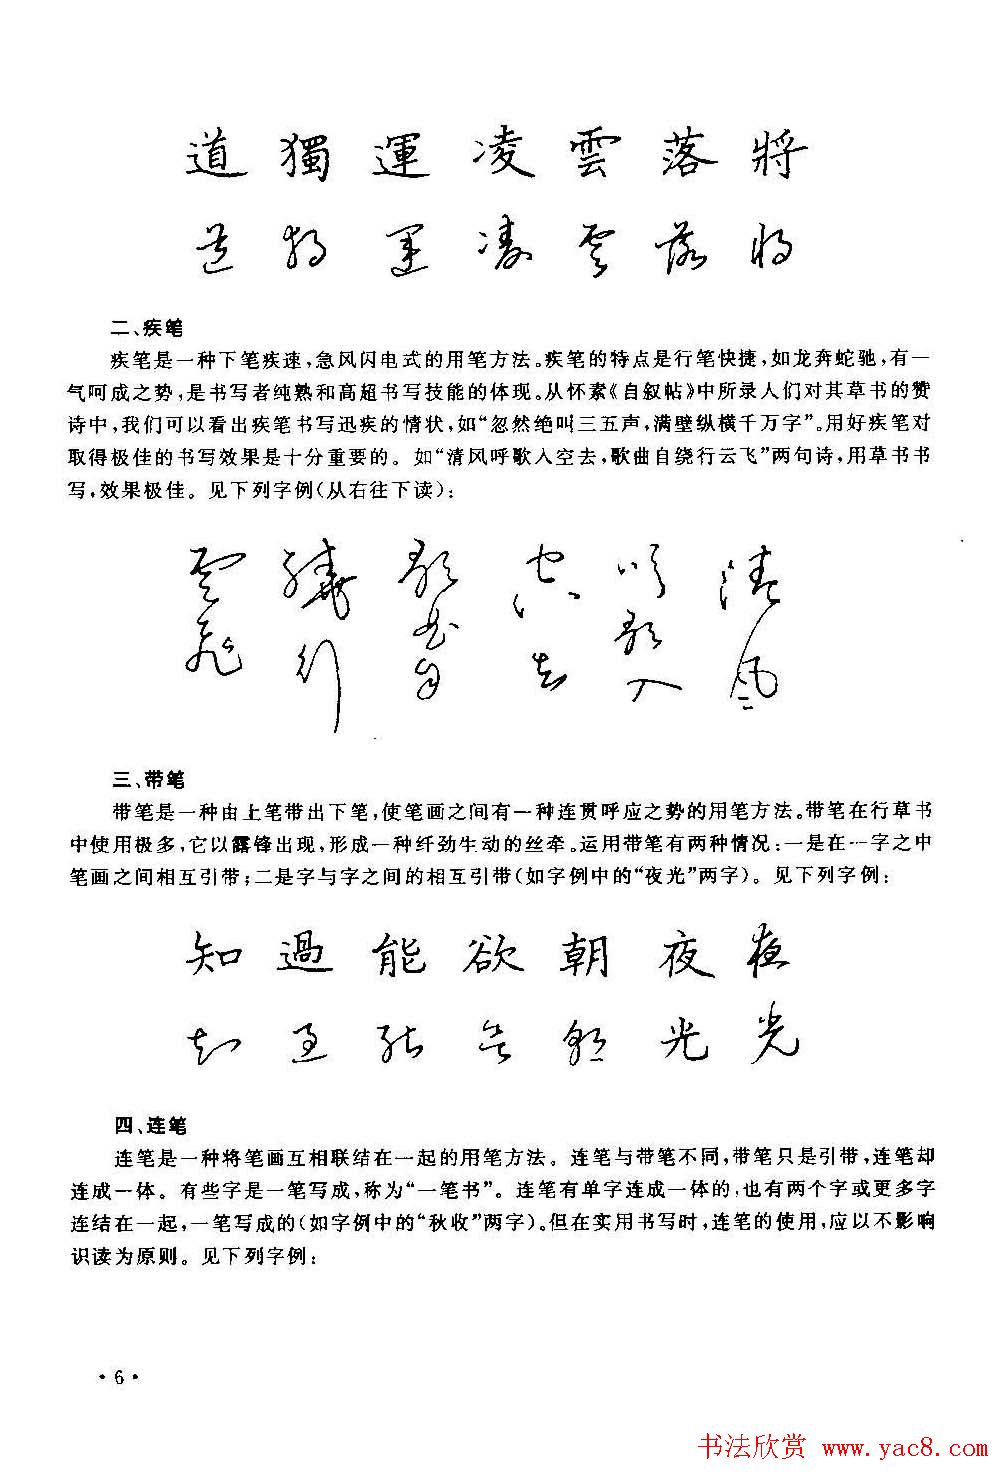 道獨運凌雲落將
道獨運凌雲落將
二、疾笔
疾笔是一种下笔疾速,急风闪电式的用笔方法。疾笔的特点是行笔快捷,如龙奔蛇驰,有一
气呵成之势,是书写者纯熟和高超书写技能的体现。从怀素《自叙帖》中所录人们对其草书的赞
诗中,我们可以看出疾笔书写迅疾的情状,如“忽然绝叫三五声,满壁纵横千万字”。用好疾笔对
取得极佳的书写效果是十分重要的。如“清风呼歌入空去,歌曲自绕行云飞”两句诗,用草书书
写,效果极佳。见下列字例(从右往下读):
清風
吹歌入
空去
歌曲自
繞行
雲飛
三、带笔
带笔是一种由上笔带出下笔,使笔画之间有一种连贯呼应之势的用笔方法。带笔在行草书
中使用极多,它以露锋出现,形成一种纤劲生动的丝牵。运用带笔有两种情况:一是在一字之中
笔画之间相互引带;二是字与字之间的相互引带(如字例中的“夜光”两字)。见下列字例:
知過能欲朝夜夜
知過能欲朝光光
四、连笔
连笔是一种将笔画互相联结在一起的用笔方法。连笔与带笔不同,带笔只是引带,连笔却
连成一体。有些字是一笔写成,称为“一笔书”。连笔有单字连成一体的,也有两个字或更多字
连结在一起,一笔写成的(如字例中的“秋收”两字)。但在实用书写时,连笔的使用,应以不影响
识读为原则。见下列字例:
·6·
书法欣赏 www.yac8.com